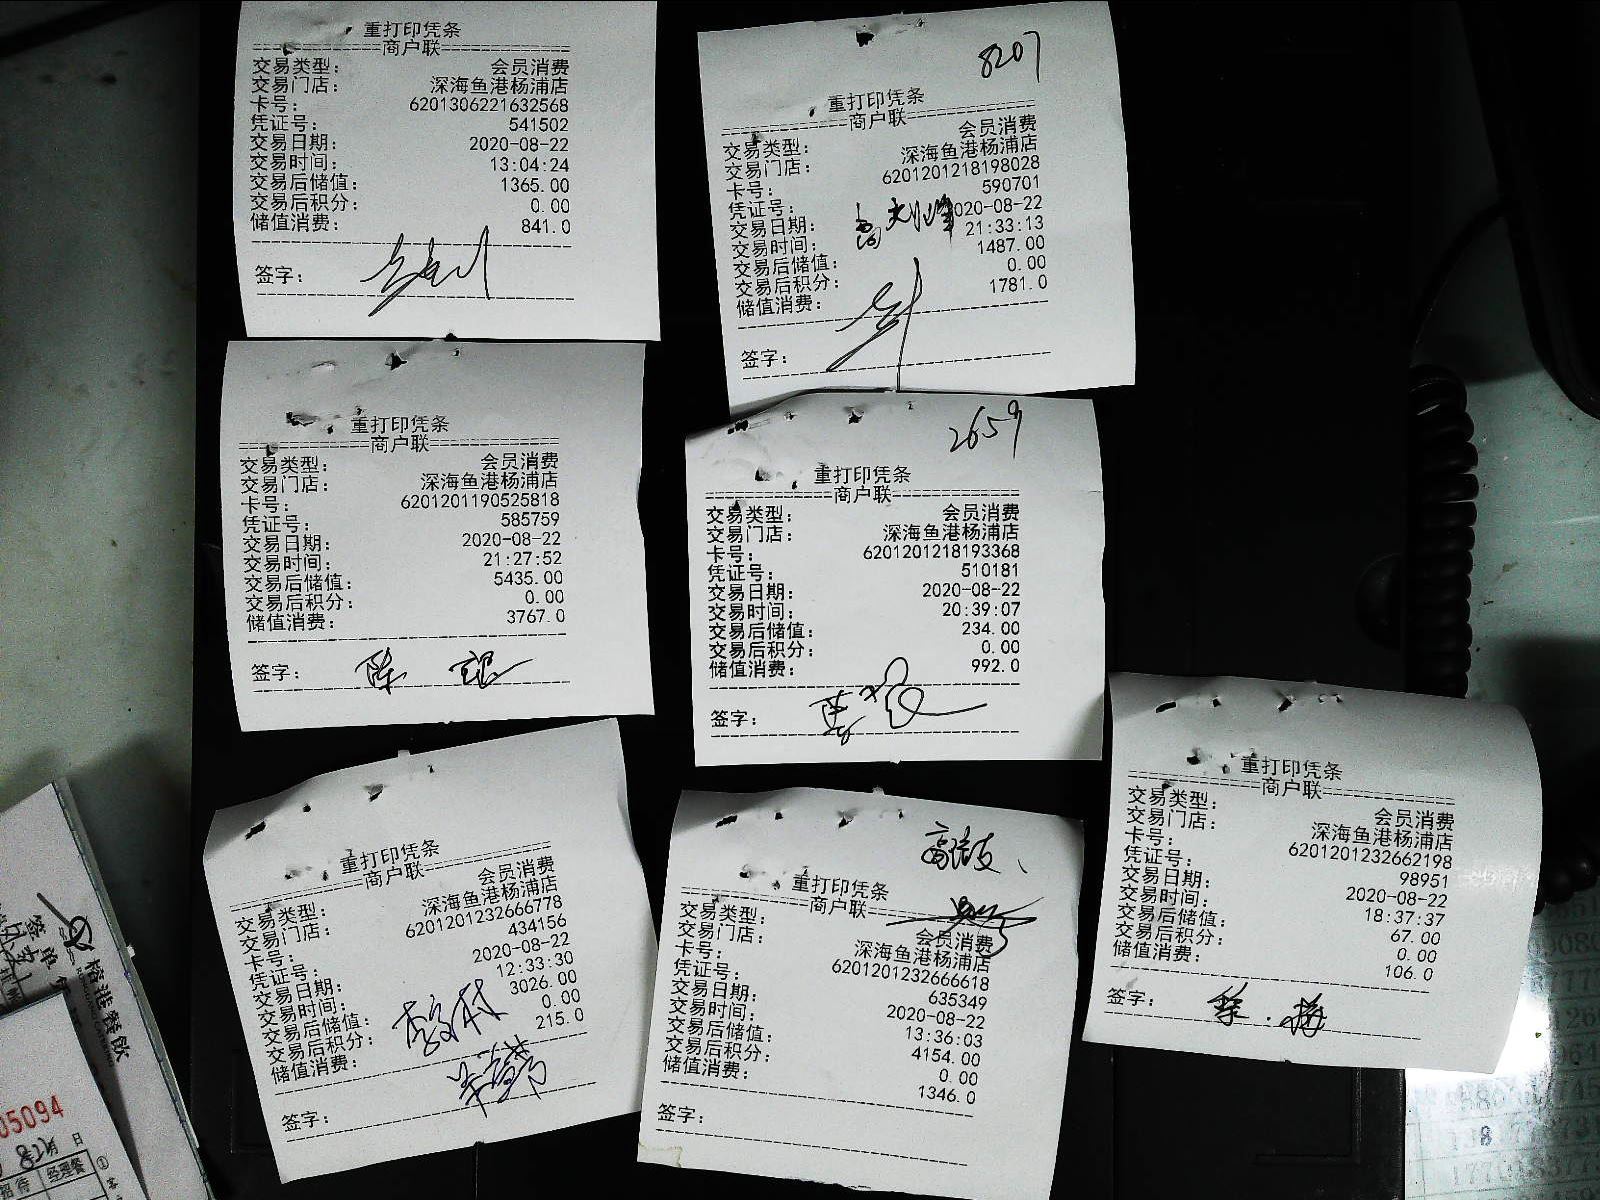 重打印凭条
==========商户联==========
交易类型： 会员消费
交易门店： 深海鱼港杨浦店
卡号： 6201306221632568
凭证号： 541502
交易日期： 2020-08-22
交易时间： 13:04:24
交易后储值： 1365.00
交易后积分： 0.00
储值消费： 841.0
签字：
8207
重打印凭条
==========商户联==========
交易类型： 会员消费
交易门店： 深海鱼港杨浦店
卡号： 6201201218198028
凭证号： 590701
交易日期： 2020-08-22
交易时间： 21:33:13
交易后储值： 1487.00
交易后积分： 0.00
储值消费： 1781.0
签字：
重打印凭条
==========商户联==========
交易类型： 会员消费
交易门店： 深海鱼港杨浦店
卡号： 6201201190525818
凭证号： 585759
交易日期： 2020-08-22
交易时间： 21:27:52
交易后储值： 5435.00
交易后积分： 0.00
储值消费： 3767.0
签字： 陈
2659
重打印凭条
==========商户联==========
交易类型： 会员消费
交易门店： 深海鱼港杨浦店
卡号： 6201201218193368
凭证号： 510181
交易日期： 2020-08-22
交易时间： 20:39:07
交易后储值： 234.00
交易后积分： 0.00
储值消费： 992.0
签字：
重打印凭条
==========商户联==========
交易类型： 会员消费
交易门店： 深海鱼港杨浦店
卡号： 6201201232666778
凭证号： 434156
交易日期： 2020-08-22
交易时间： 12:33:30
交易后储值： 3026.00
交易后积分： 0.00
储值消费： 215.0
签字：
重打印凭条
==========商户联==========
交易类型： 会员消费
交易门店： 深海鱼港杨浦店
卡号： 6201201232666618
凭证号： 635349
交易日期： 2020-08-22
交易时间： 13:36:03
交易后储值： 4154.00
交易后积分： 0.00
储值消费： 1346.0
签字：
重打印凭条
==========商户联==========
交易类型： 会员消费
交易门店： 深海鱼港杨浦店
卡号： 6201201232662198
凭证号： 98951
交易日期： 2020-08-22
交易时间： 18:37:37
交易后储值： 67.00
交易后积分： 0.00
储值消费： 106.0
签字：
餐飲
05094
月 日
招待 经理餐